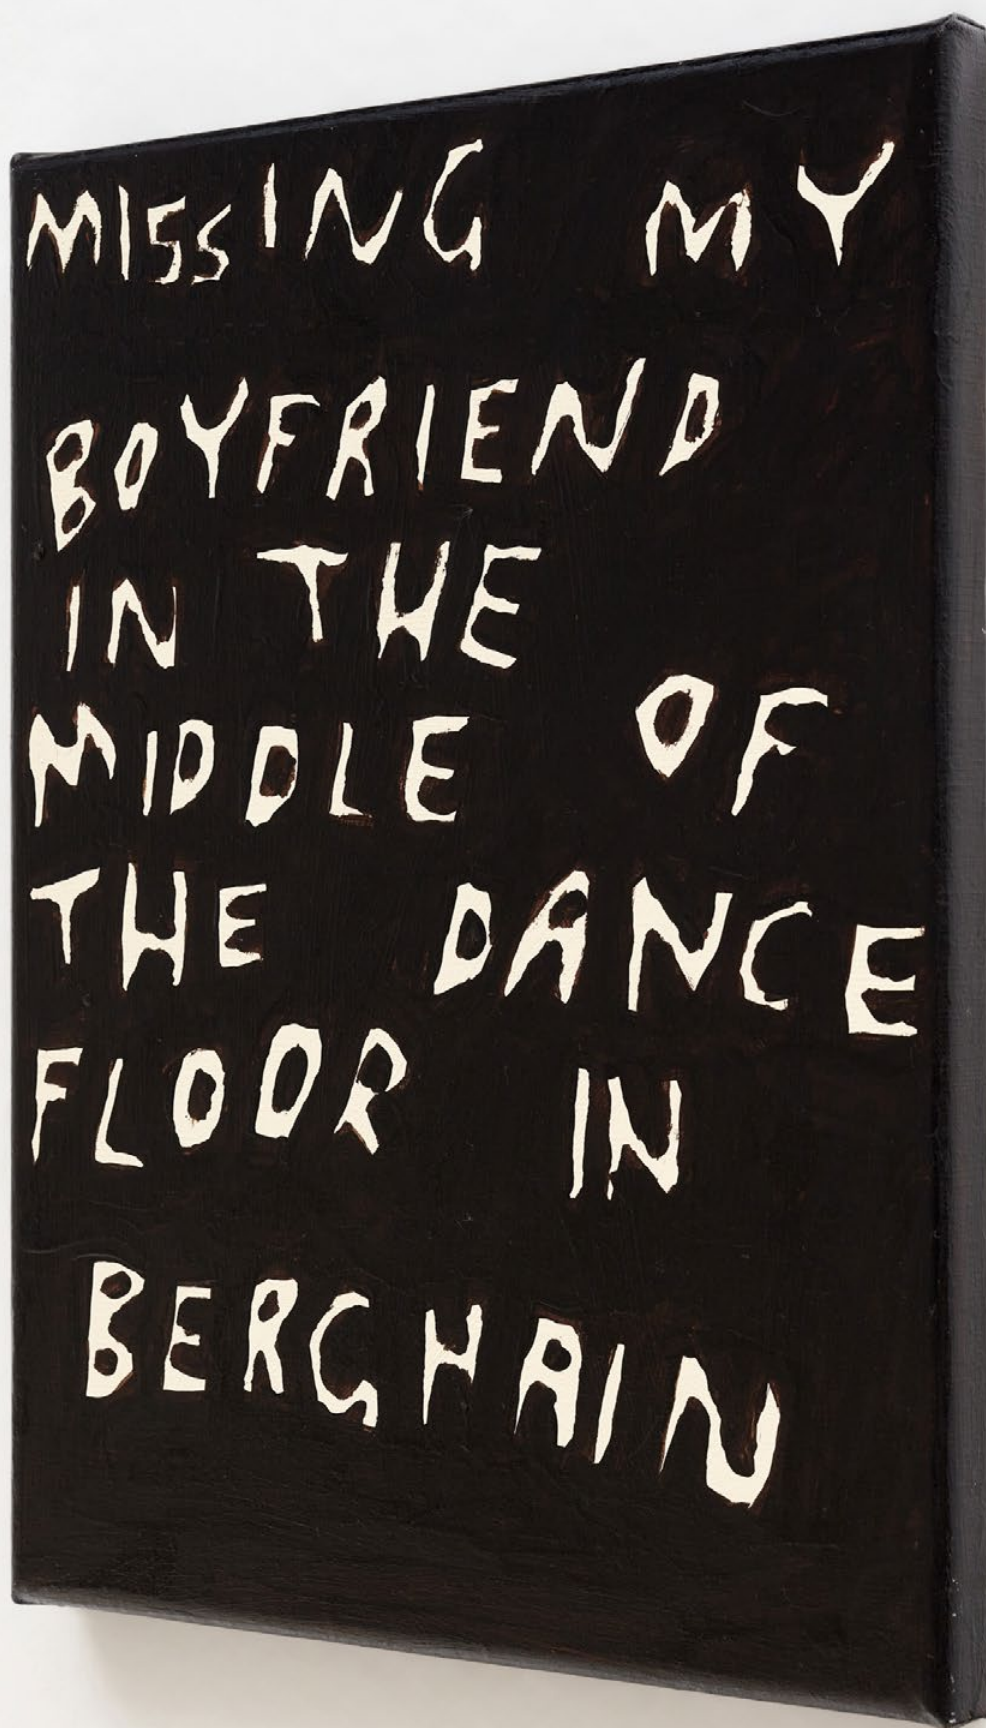 MISSING MY
BOYFRIEND
IN THE
MIDDLE OF
THE DANCE
FLOOR IN
BERGHAIN